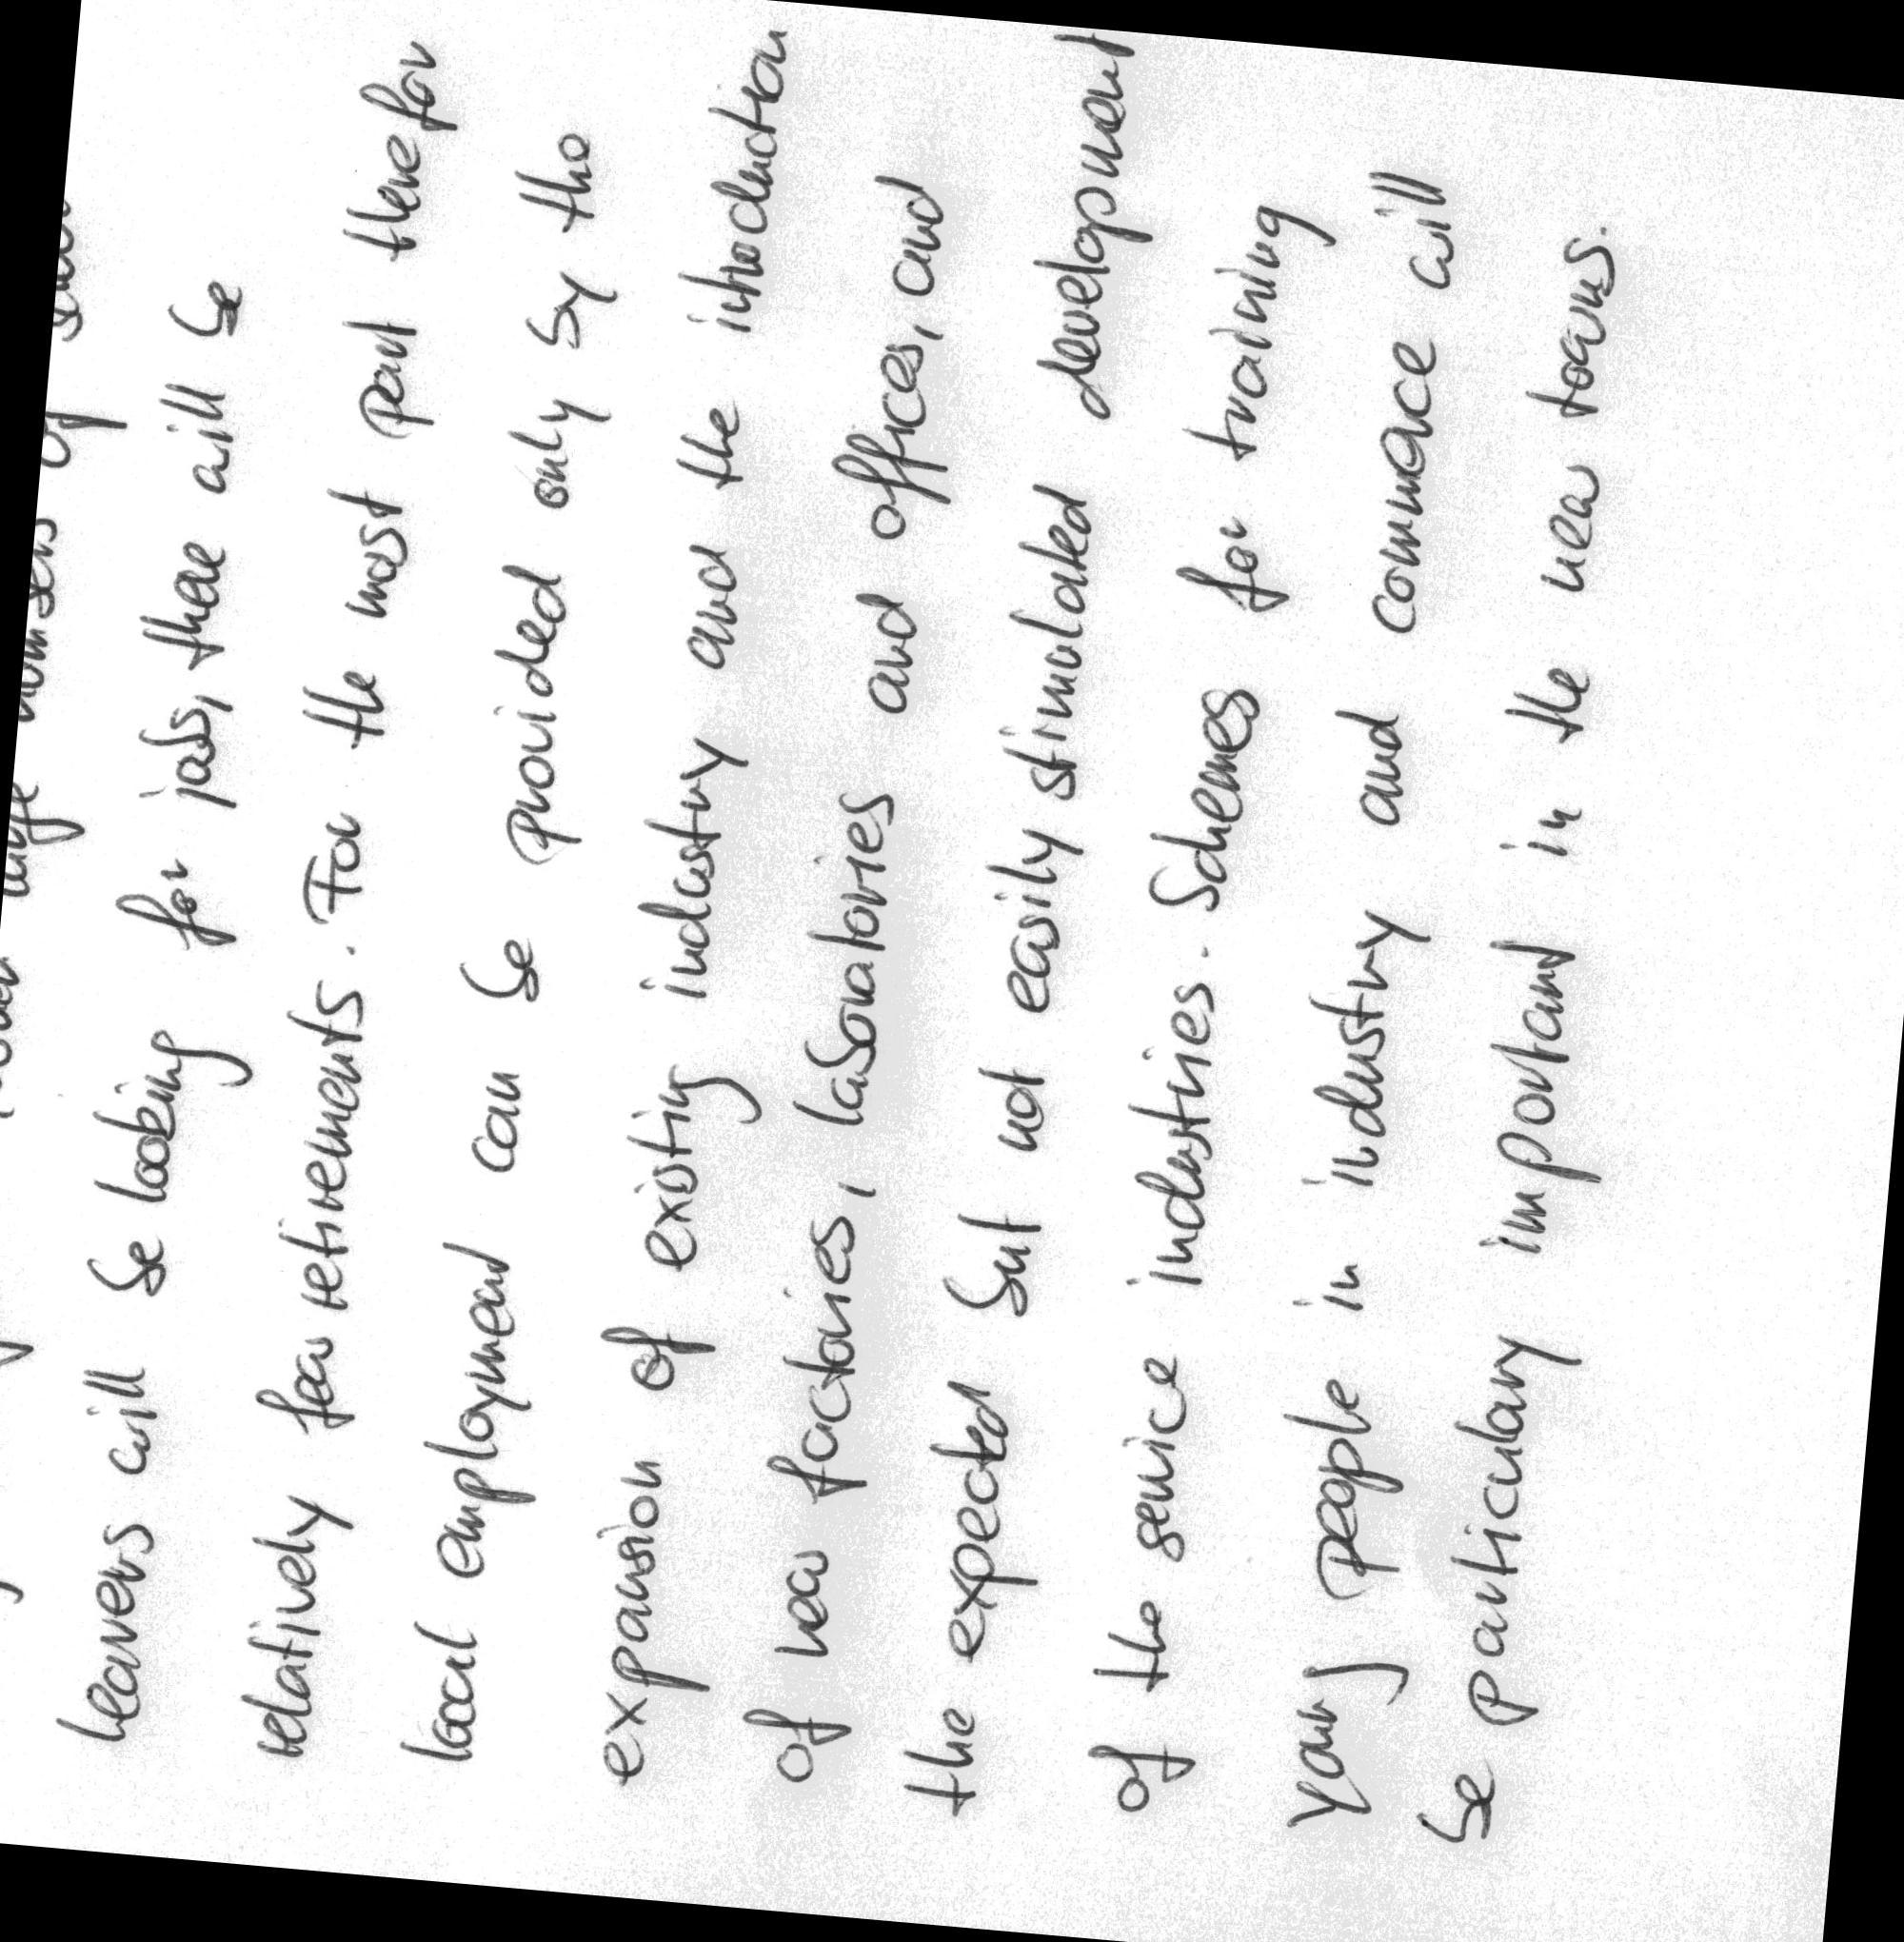 large numbers of
leavers will be looking for jobs, there will be
relatively few retirements. For the most part therefor
local employment can be provided only by the
expansion of existing industry and the introduction
of new factories, laboratories and offices, and
the expected but not easily stimulated development
of the service industries. Schemes for training
young people in industry and commerce will
be particulary important in the new towns.